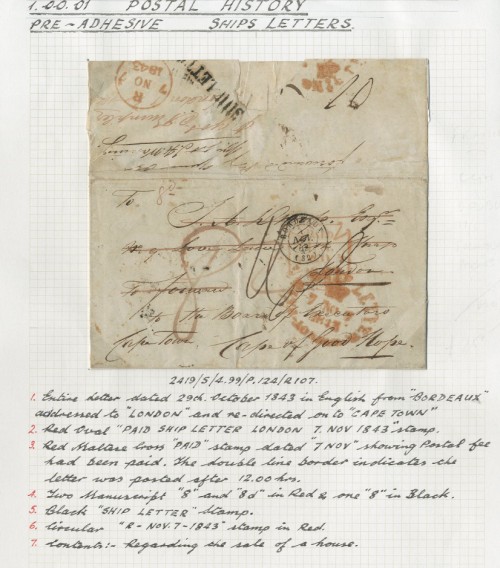 1.00.01 POSTAL HISTORY
PRE-ADHESIVE SHIPS LETTERS.
R
7 NO 7
1843
SHIP LETTER
To
London
To be forwarded
the Board of Executors
Cape Town Cape of Good Hope.
SHIP LETTER
2419/S/4.99/P.124/R107.
1. Entire letter dated 29th. October 1843 in English from "BORDEAUX"
addressed to "LONDON" and re-directed on to "CAPE TOWN"
2. Red Oval "PAID SHIP LETTER LONDON 7. NOV 1843" stamp.
3. Red Maltese Cross "PAID" stamp dated "7 NOV" showing Postal fee
had been paid. The double line border indicates the
letter was posted after 12.00 hrs.
4. Two Manuscript "8" and "8d" in Red & one "8" in Black.
5. Black "SHIP LETTER" Stamp.
6. Circular "R-NOV.7-1843" stamp in Red.
7. Contents:- Regarding the sale of a house.